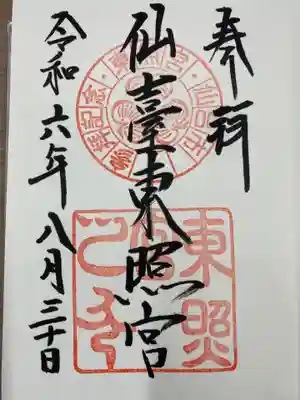 奉拝
仙臺東照宮
令和六年八月三十日
東照宮